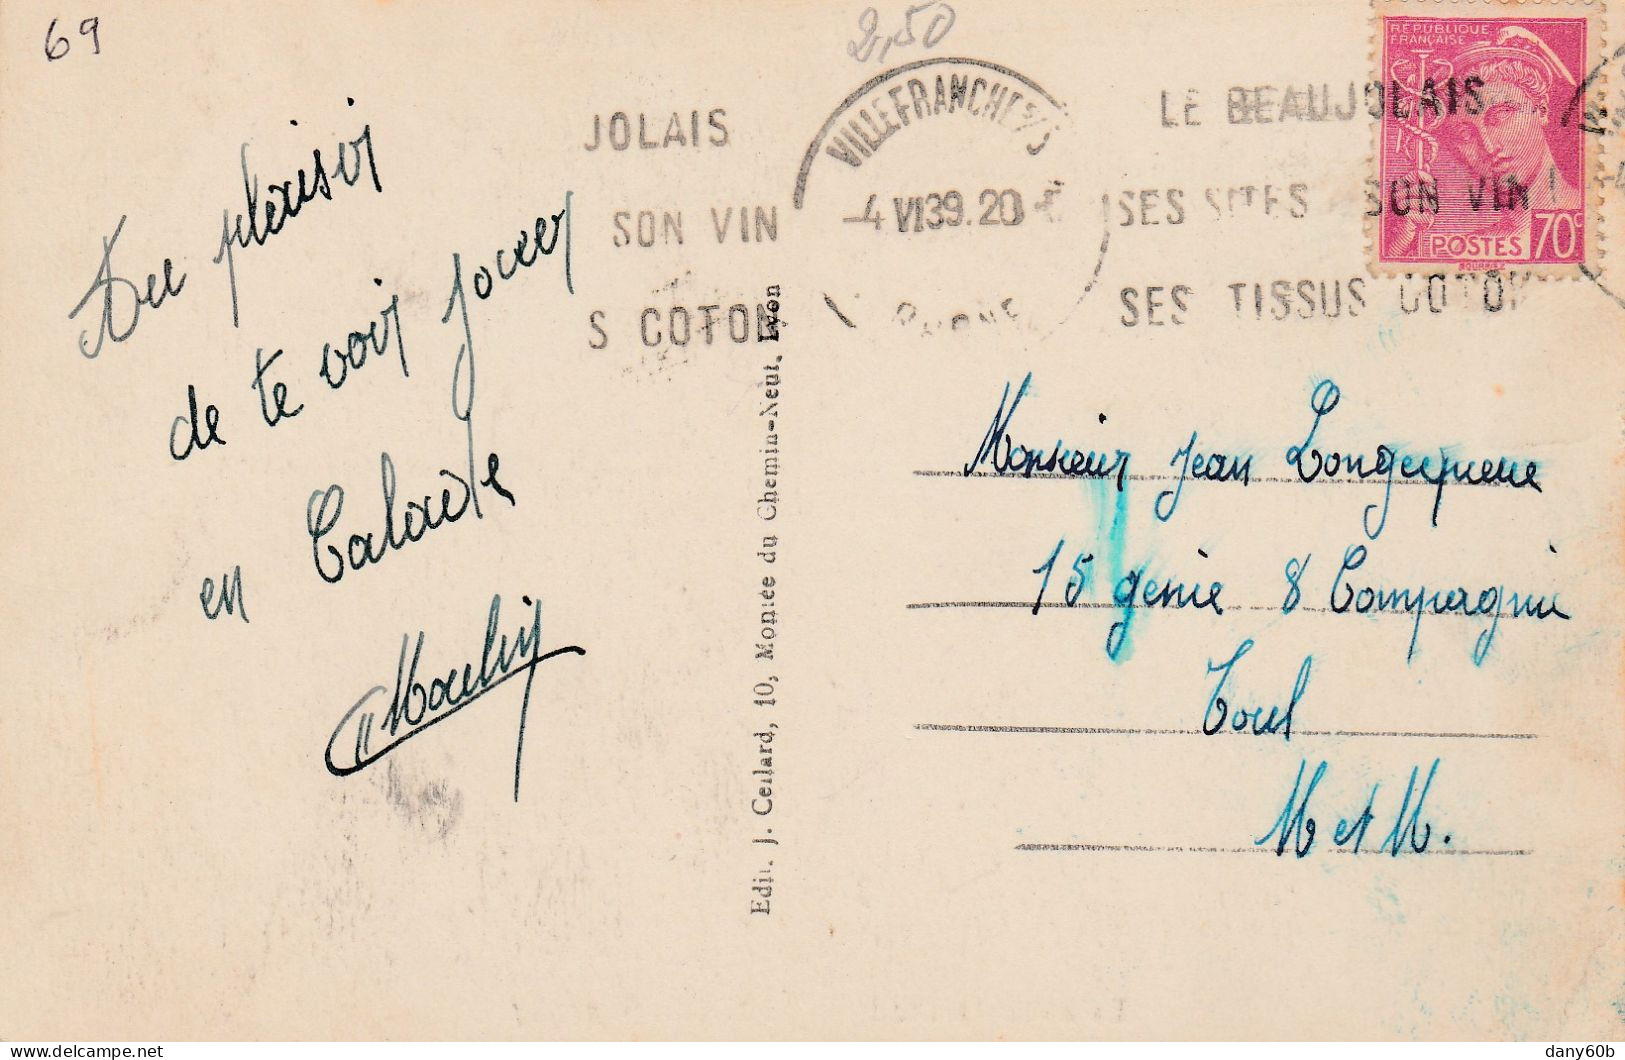 69
2,50
JOLAIS
SON VIN
S COTON
VILLEFRANCHE S/S
-4 VI 39.20
RHONE
LE BEAUJOLAIS
SES SITES SON VIN
SES TISSUS COTON
REPUBLIQUE
FRANÇAISE
POSTES 70c
Au plaisir
de te voir jouer
en Calade
Moulin
Edit. J. Cellard, 10, Montée du Chemin-Neuf, Lyon
Monsieur Jean Longuqueue
15 genie 8 Compagnie
Toul
M et M.
dany60b